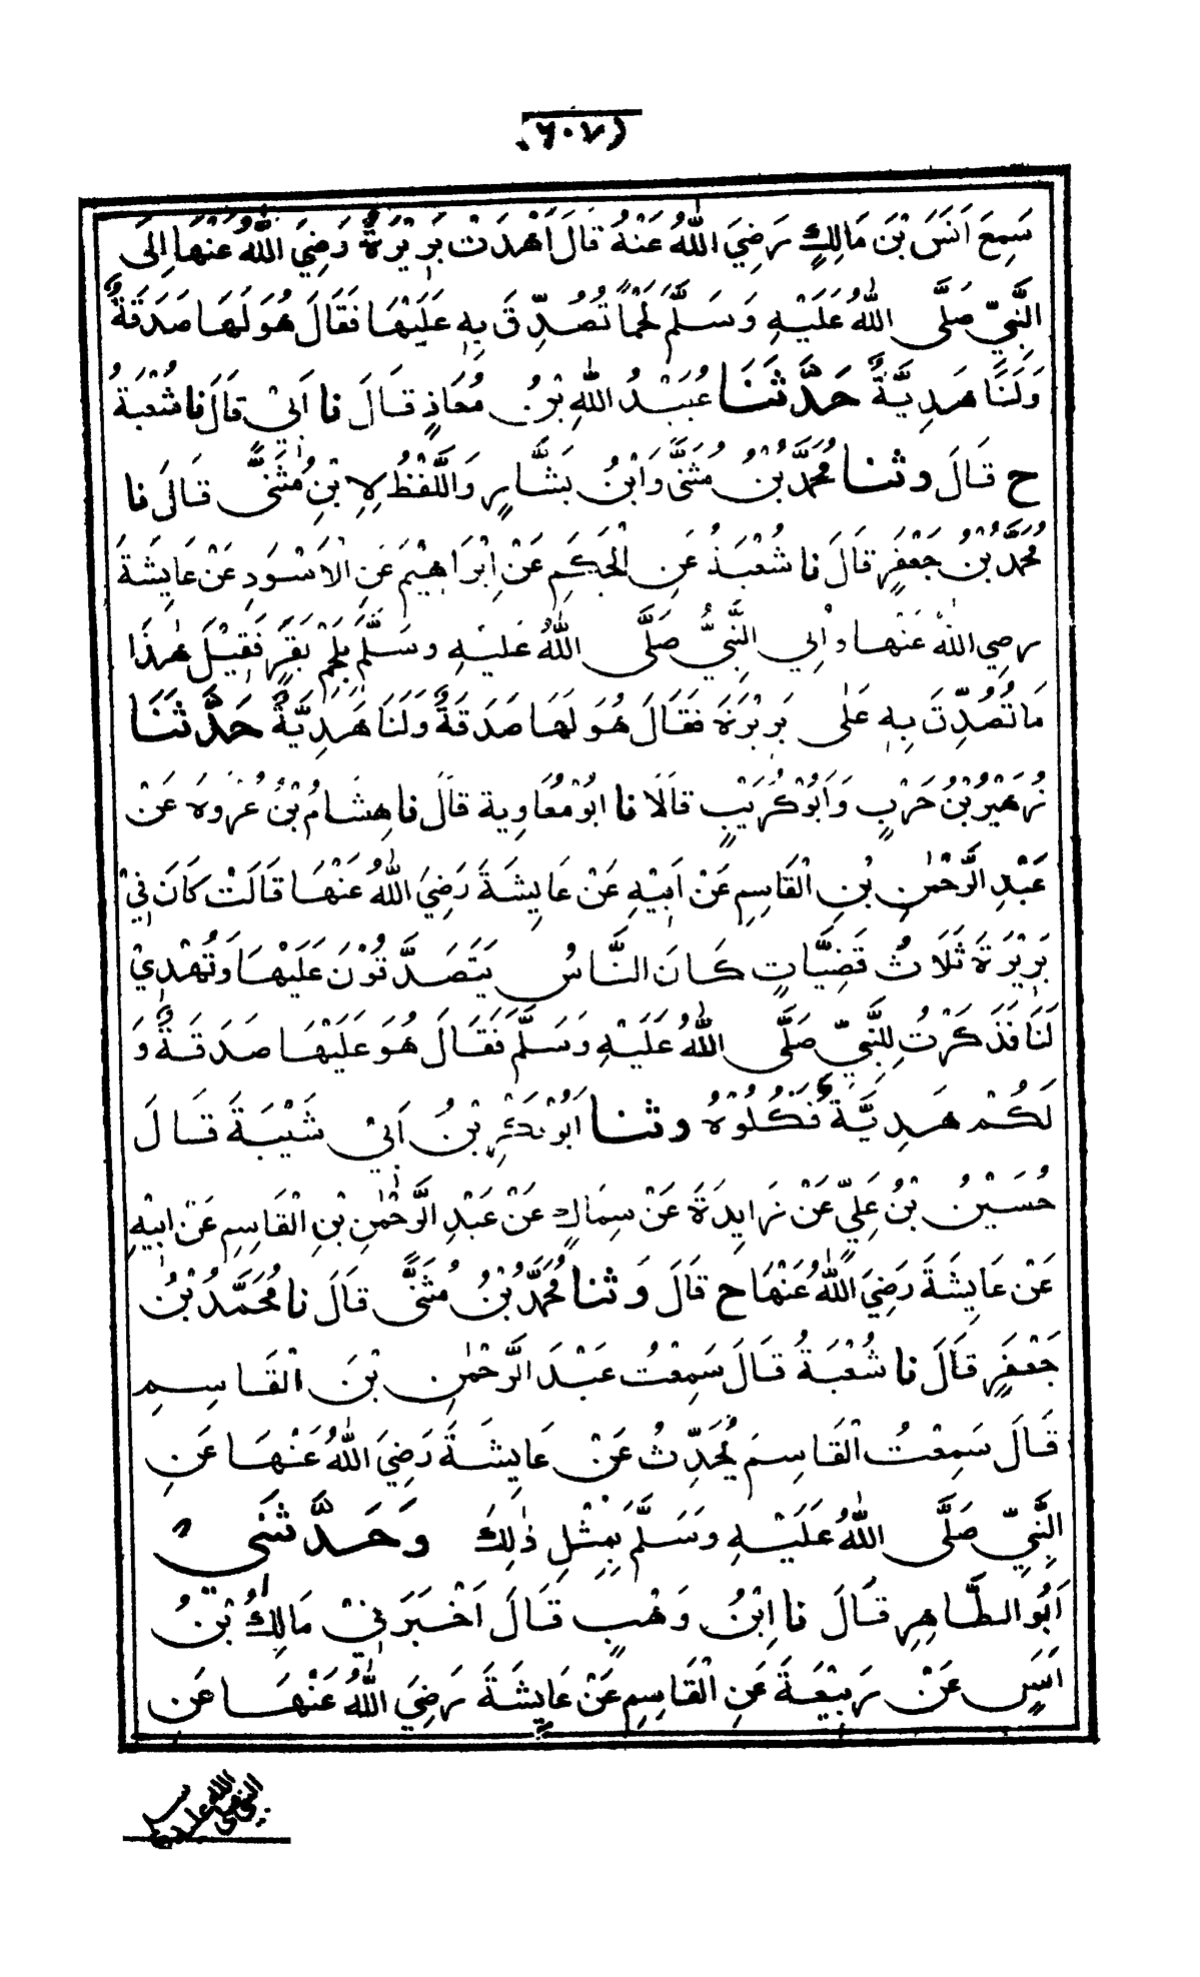 (۶۰۷)
سَمِعَ اَنَسَ بْنَ مَالِكٍ رَضِيَ اللّٰهُ عَنْهُ قَالَ اَهْدَتْ بَرِيْرَةُ رَضِيَ اللّٰهُ عَنْهَا اِلَى
النَّبِيِّ صَلَّى اللّٰهُ عَلَيْهِ وَسَلَّمَ لَحْمًا تُصُدِّقَ بِهٖ عَلَيْهَا فَقَالَ هُوَ لَهَا صَدَقَةٌ
وَلَنَا هَدِيَّةٌ حَدَّثَنَا عُبَيْدُ اللّٰهِ بْنُ مُعَاذٍ قَالَ نا اَبِيْ قَالَ نا شُعْبَةُ
ح قَالَ وثنا مُحَمَّدُ بْنُ مُثَنَّى وَابْنُ بَشَّارٍ وَاللَّفْظُ لِاِبْنِ مُثَنًّى قَالَ نا
مُحَمَّدُ بْنُ جَعْفَرٍ قَالَ نا شُعْبَةُ عَنِ الْحَكَمِ عَنْ اِبْرَاهِيْمَ عَنِ الْاَسْوَدِ عَنْ عَايِشَةَ
رضي الله عَنْهَا واُتِي النَّبِيُّ صَلَّى اللّٰهُ عَلَيْهِ وسَلَّمَ بِلَحْمِ بَقَرٍ فَقِيْلَ هٰذَا
مَا تُصُدِّقَ بِهٖ عَلٰى بَرِيْرَةَ فَقَالَ هُوَ لَهَا صَدَقَةٌ وَلَنَا هَدِيَّةٌ حَدَّثَنَا
زُهَيْرُ بْنُ حَرْبٍ وَاَبُوْ كُرَيْبٍ قَالَا نا ابُوْ مُعَاوِيَة قَالَ نا هِشَامُ بْنُ عُرْوَةَ عَنْ
عَبْدِ الرَّحْمٰنِ بْنِ الْقَاسِمِ عَنْ اَبِيْهِ عَنْ عَايِشَةَ رَضِيَ اللّٰهُ عَنْهَا قَالَتْ كَانَ فِيْ
بَرِيْرَةَ ثَلَاثُ قَضِيَّاتٍ كَانَ النَّاسُ يَتَصَدَّقُوْنَ عَلَيْهَا وَتُهْدِيْ
لَنَا فَذَكَرْتُ لِلنَّبِيِّ صَلَّى اللّٰهُ عَلَيْهِ وَسَلَّمَ فَقَالَ هُوَ عَلَيْهَا صَدَقَةٌ وَ
لَكُمْ هَدِيَّةٌ فَكُلُوْهُ وثنا اَبُوْ بَكْرِ بْنُ اَبِيْ شَيْبَةَ قَالَ
حُسَيْنُ بْنُ عَلِيٍّ عَنْ زَايِدَةَ عَنْ سِمَاكٍ عَنْ عَبْدِ الرَّحْمٰنِ بْنِ الْقَاسِمِ عَنْ اَبِيْهِ
عَنْ عَايِشَةَ رَضِيَ اللّٰهُ عَنْهَا ح قَالَ وَثنا مُحَمَّدُ بْنُ مُثَنًّى قَالَ نا مُحَمَّدُ بْنُ
جَعْفَرٍ قَالَ نا شُعْبَةُ قَالَ سَمِعْتُ عَبْدَ الرَّحْمٰنِ بْنَ الْقَاسِمِ
قَالَ سَمِعْتُ الْقَاسِمَ يُحَدِّثُ عَنْ عَايِشَةَ رَضِيَ اللّٰهُ عَنْهَا عَنِ
النَّبِيِّ صَلَّى اللّٰهُ عَلَيْهِ وسَلَّمَ بِمِثْلِ ذٰلِكَ وحَدَّثَنِيْ
اَبُو الطَّاهِرِ قَالَ نا اِبْنُ وَهْبٍ قَالَ اَخْبَرَنِيْ مَالِكُ بْنُ
اَنَسٍ عَنْ رَبِيْعَةَ عَنِ الْقَاسِمِ عَنْ عَايِشَةَ رَضِيَ اللّٰهُ عَنْهَا عَنِ
النبي صلى الله عليه وسلم